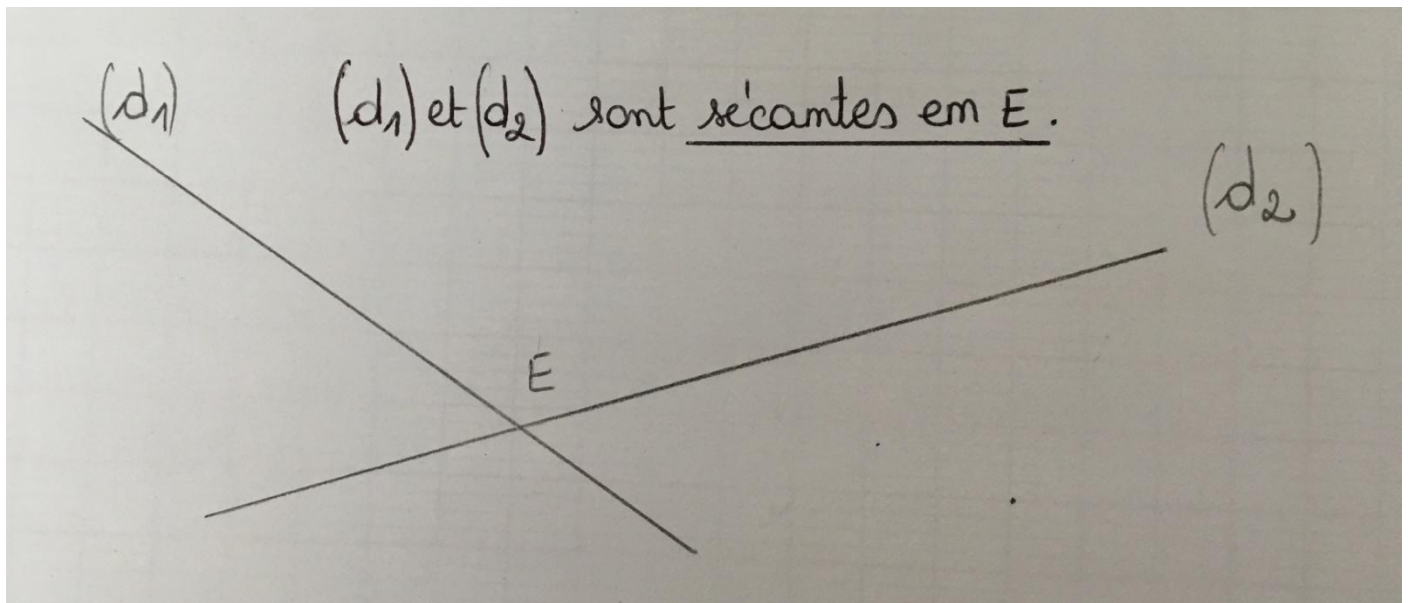 (d₁)
(d₁) et (d₂) sont sécantes en E.
(d₂)
E